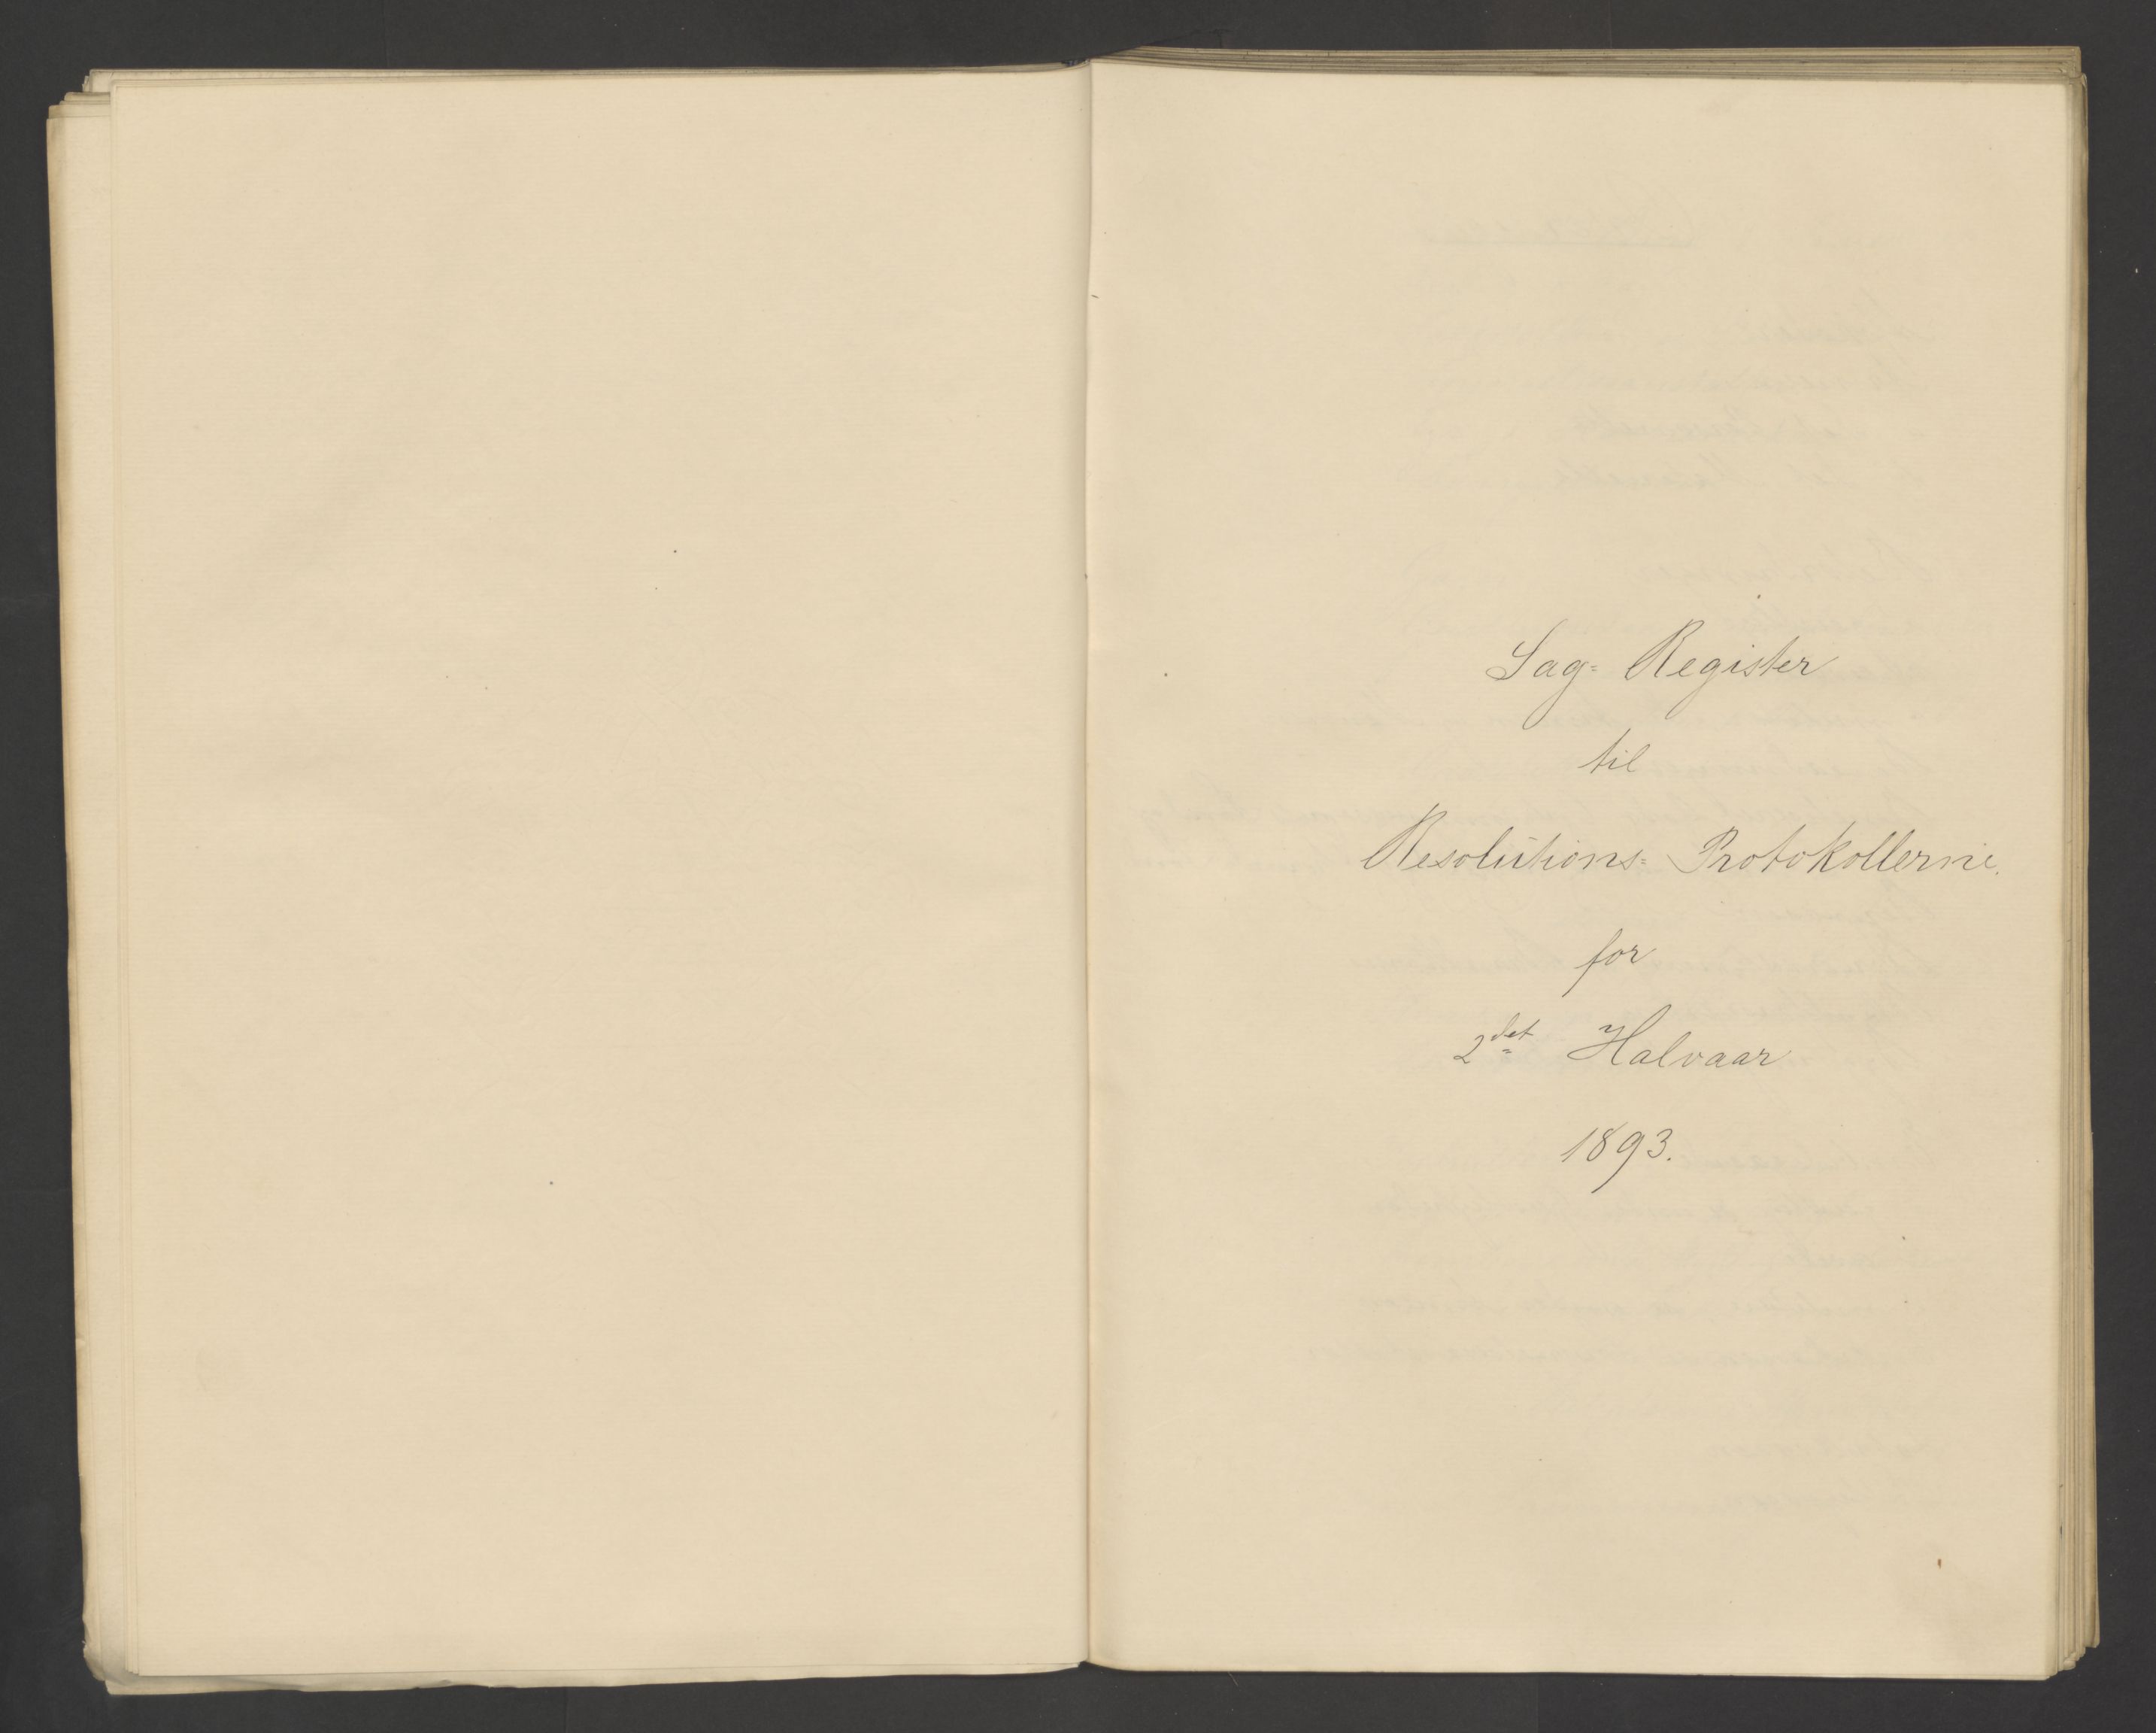 Sag= Register
til
Resolutions= Protokollerne.
for
2det Halvaar
1893.